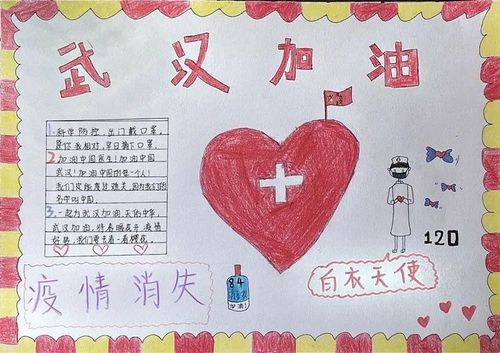 武汉加油
1.科学防控,出门戴口罩,
愿你我相对,早日摘下口罩。
2.加油中国医生!加油中国
武汉!加油中国的每一个人!
我们定能度过难关,因为我们的
名字叫中国。
3.一起为武汉加油,
武汉加油,待春暖花开,疫情
好转,我们要去看一看樱花。
120
疫情消失
84
白衣天使